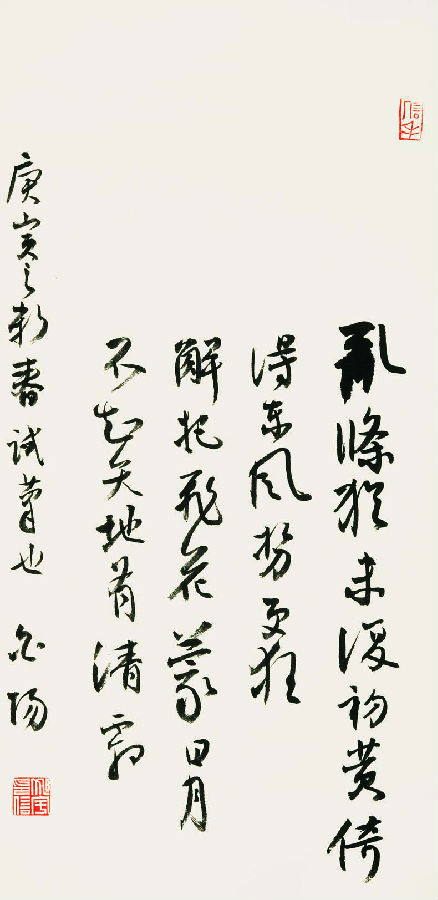 亂條猶未復初黄倚
得東風勢更狂
解把飛花蒙日月
不知天地有清霜
庚寅之新春試筆也 陽